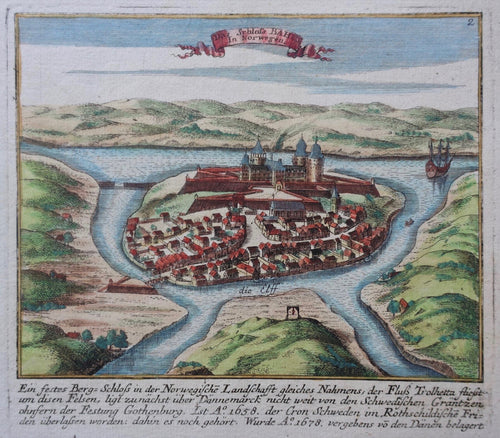 2
Das Schloss BAHUS
In Norwegen.
die Elff
Ein festes Berg-Schloß in der Norwegischē Landschafft gleiches Nahmens; der Fluß Trolhetta fliest
um disen Felsen, ligt zunächst über Dännemärck nicht weit von den Schwedischen Gräntzen
ohnfern der Festung Gothenburg. Ist Aº. 1658. der Cron Schweden im Röthschildische Fri-
den überlassen worden: dahin es noch gehört. Wurde Aº. 1678. vergebens vō den Dänen belagert